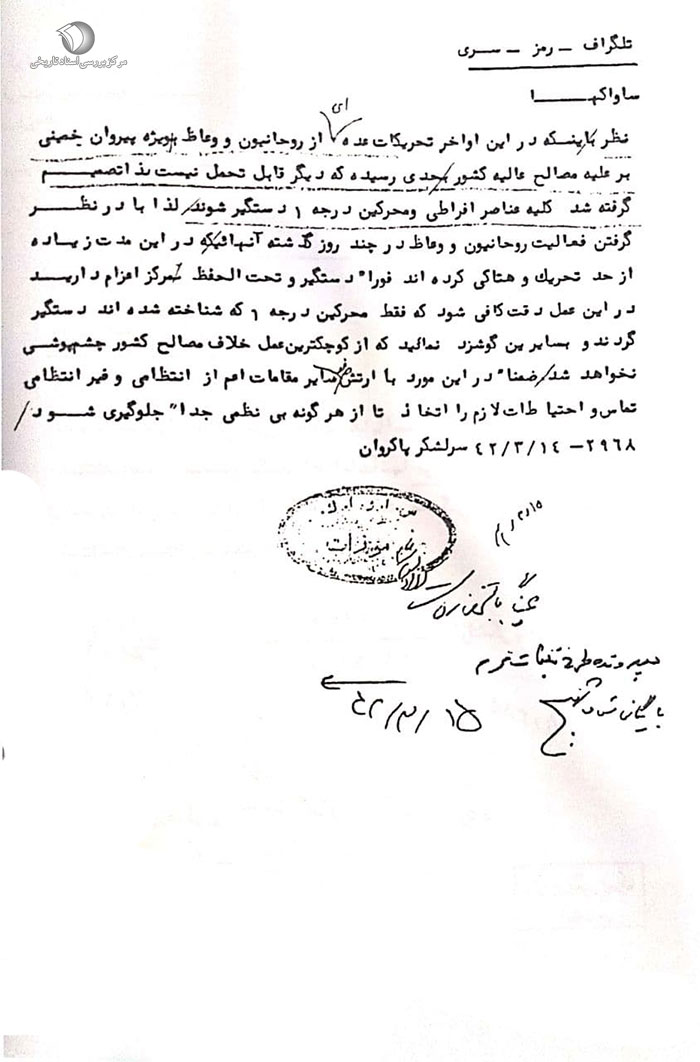 مرکز بررسی اسناد تاریخی
تلگراف - رمز - سری
ساواکهـــا
نظر باینکه در این اواخر تحریکات عده ای از روحانیون و وعاظ بویژه پیروان خمینی
بر علیه مصالح عالیه کشور بحدی رسیده که دیگر قابل تحمل نیست لذا تصمیم
گرفته شد کلیه عناصر افراطی ومحرکین درجه ۱ دستگیر شوند/ لذا با در نظر
گرفتن فعالیت روحانیون و وعاظ در چند روز گذشته آنهائیکه در این مدت زیاده
از حد تحریک و هتاکی کرده اند فوراً دستگیر و تحت الحفظ بمرکز اعزام دارید
در این عمل دقت کافی شود که فقط محرکین درجه ۱ که شناخته شده اند دستگیر
گردند و بسایرین گوشزد نمائید که از کوچکترین عمل خلاف مصالح کشور چشم‌پوشی
نخواهد شد/ ضمناً در این مورد با ارتش و سایر مقامات اعم از انتظامی و غیر انتظامی
تماس و احتیاطات لازم را اتخاذ تا از هر گونه بی نظمی جداً جلوگیری شود/
۲۹۶۸ - ۴۲/۳/۱۴ سرلشگر پاکروان
س. ا. و. ا. ک.
۴۲/۳/۱۵